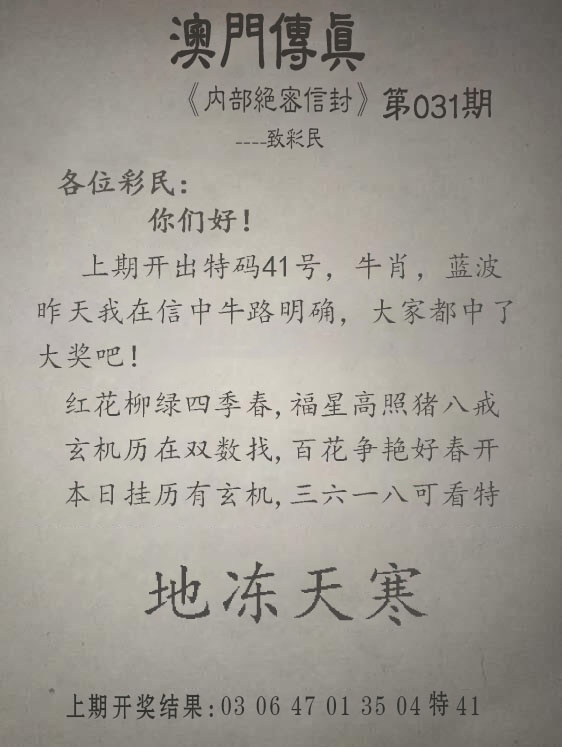 澳門傳眞
《内部絕密信封》第031期
----致彩民
各位彩民：
你们好！
上期开出特码41号，牛肖，蓝波
昨天我在信中牛路明确，大家都中了
大奖吧！
红花柳绿四季春,福星高照猪八戒
玄机历在双数找,百花争艳好春开
本日挂历有玄机,三六一八可看特
地冻天寒
上期开奖结果:03 06 47 01 35 04 特 41